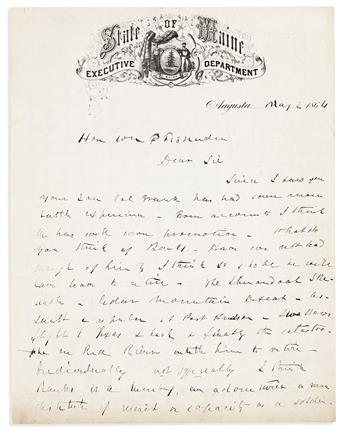 State of Maine
EXECUTIVE DEPARTMENT
Augusta, May 2 1864
Hon Wm P Fessenden
Dear Sir
Since I saw you
your son Col Frank has had some more
battle experience - From accounts I think
he has well won promotion - What do
you think of Banks - Have we not had
enough of him? I think so & hope he will
have leave to retire - The Shenandoah
Cedar Mountain Defeat - as-
sault & repulse at Port Hudson -
to Texas & back & finally the catastro-
phe on Red River entitle him to retire -
Individually not I think
Banks is a humbug, an adventurer a man
destitute of merit or capacity as a soldier